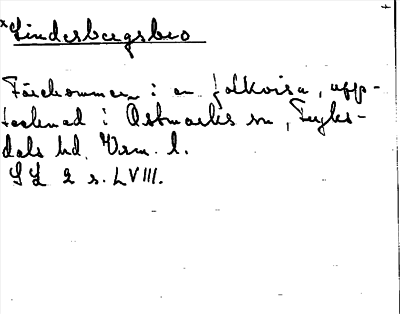 *Lindesbergsbro
Förekommer i en folkvisa, upp-
tecknad i Östmarks sn, Fryks-
dals hd. Vrm. l.
SL 2 s. LVIII.